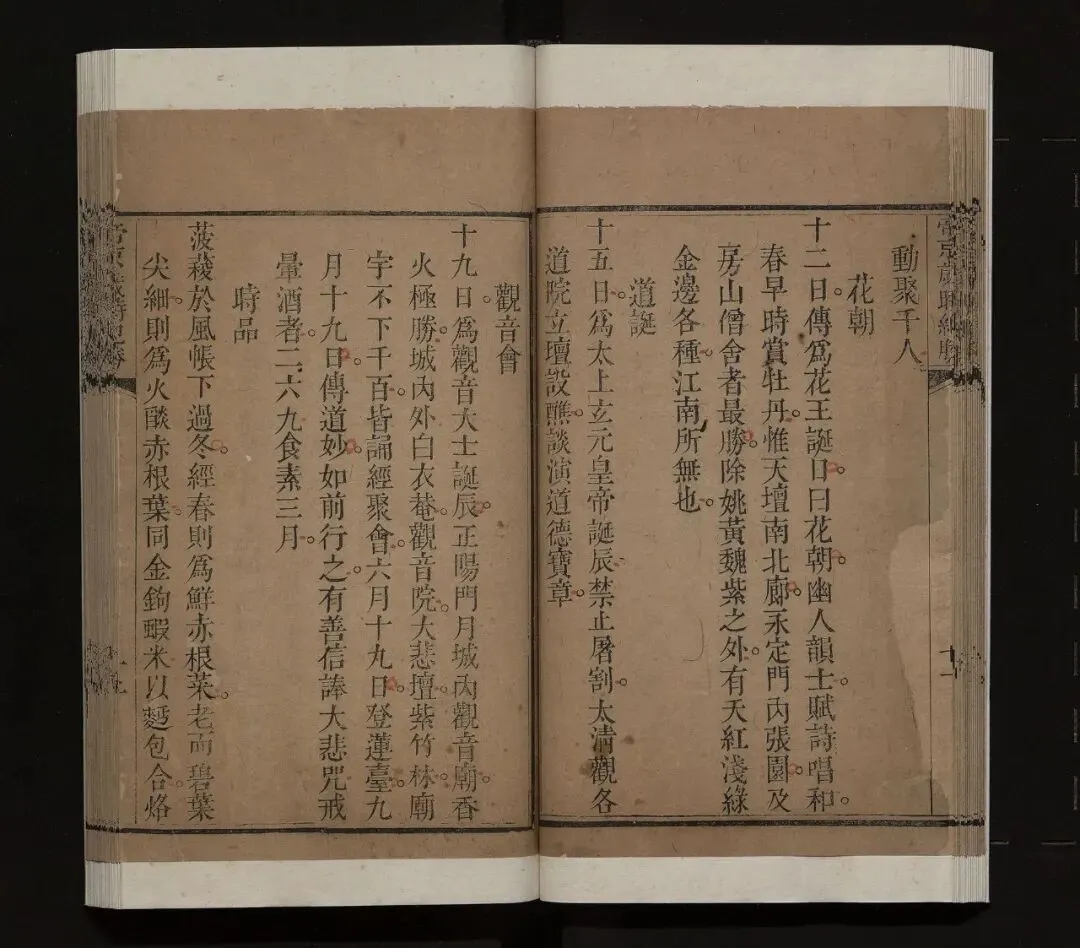 動聚千人
花朝
十二日傳爲花王誕日曰花朝幽人韻士賦詩唱和
春早時賞牡丹惟天壇南北廊永定門內張園及
房山僧舍者最勝除姚黃魏紫之外有天紅淺綠
金邊各種江南所無也
道誕
十五日爲太上玄元皇帝誕辰禁止屠割太清觀各
道院立壇設醮談演道德寶章
觀音會
十九日爲觀音大士誕辰正陽門月城內觀音廟香
火極勝城內外白衣菴觀音院大悲壇紫竹林廟
宇不下千百皆誦經聚會六月十九日登蓮臺九
月十九日傳道妙如前行之有善信誦大悲咒戒
暈酒者二六九食素三月
時品
菠薐於風帳下過冬經春則爲鮮赤根菜老而碧葉
尖細則爲火酸赤根葉同金鉤蝦米以麪包合烙